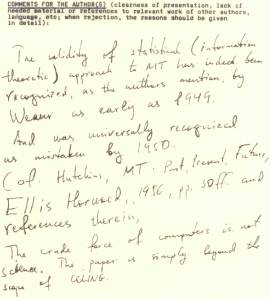 COMMENTS FOR THE AUTHOR(S) (clearness of presentation, lack of
needed material or references to relevant work of other authors,
language, etc; when rejection, the reasons should be given
in detail):
The validity of statistical (information
theoretic) approach to MT has indeed been
recognized, as the authors mention, by
Weaver as early as 1949.
And was universally recognized
as mistaken by 1950.
(cf. Hutchins, MT: Past, Present, Future,
Ellis Horwood, 1986, pp. 30ff. and
references therein)
The crude force of computers is not
science. The paper is simply beyond the
scope of COLING.